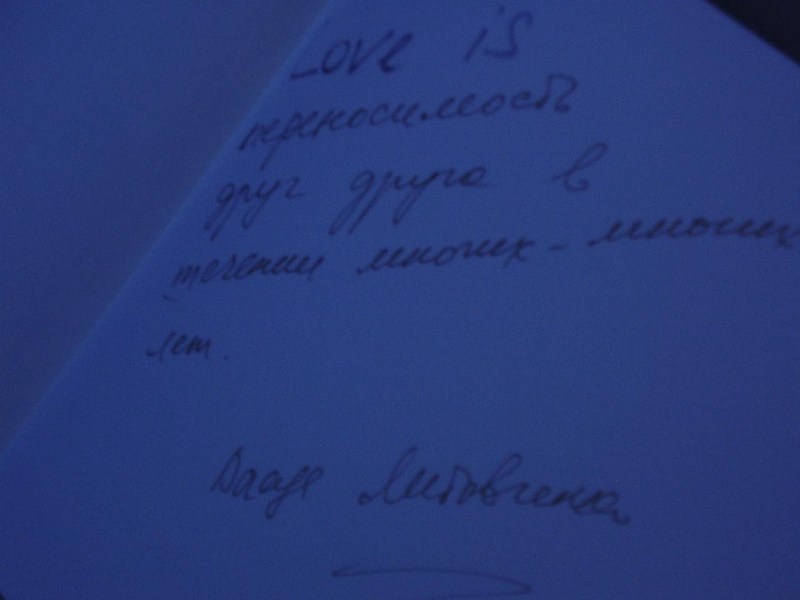 Love is
переносимость
друг друга в
течении многих - многих
лет.